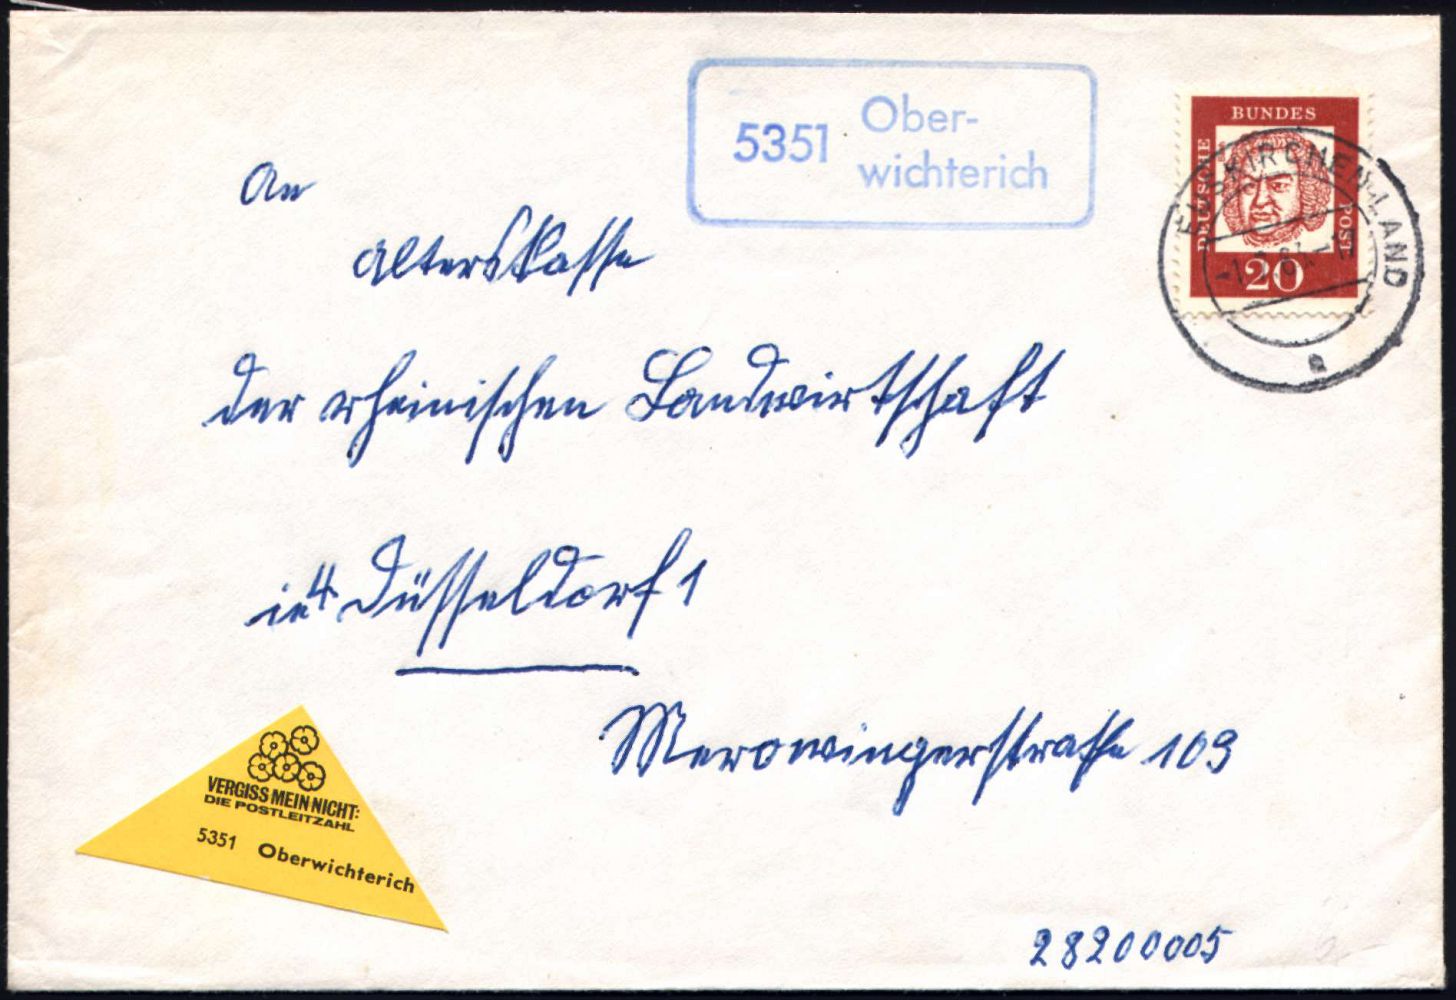 5351 Ober-
wichterich
BUNDES
DEUTSCHE
POST
20
EUSKIRCHEN-LAND
a
An
Alterskasse
der rheinischen Landwirtschaft
in 4 Düsseldorf 1
Merowingerstraße 109
VERGISS-MEIN-NICHT:
DIE POSTLEITZAHL
5351 Oberwichterich
28200005